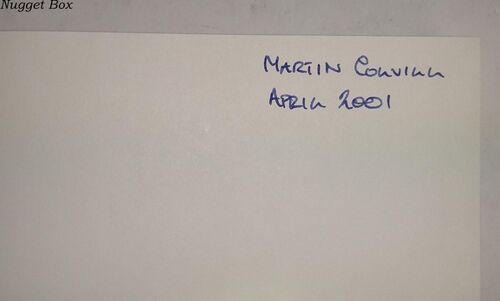 Nugget Box
MARTIN COLVILL
APRIL 2001